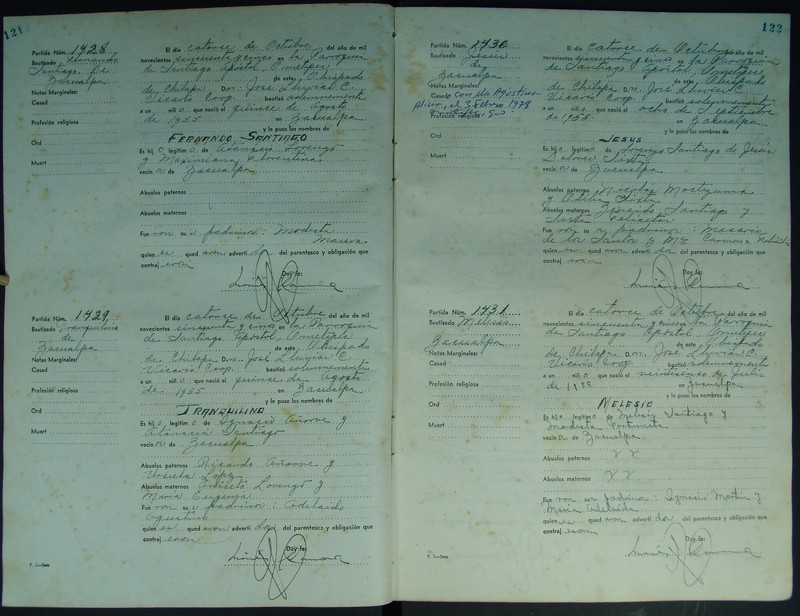 121
Partida Núm. 1428
Bautizado Fernando
Santiago de
Zacualpa
Notas Marginales:
Casad
Profesión religiosa
Ord
Muert
El día catorse de Octubre del año de mil
novecientos cincuenta y cinco en la Parroquia
de Santiago Apóstol Ometepec
de este, Obispado
de Chilapa D.n. José Lluvias C.
Vicario Coop. bautisó solemnemente
a un niñ o que nació el quince de Agosto
de 1955 en Zacualpa
y le puso los nombres de
FERNANDO SANTIAGO
Es hij o legítim o de Atanasio Lorenzo
y Maximiana Florentina
vecin os de Zacualpa
Abuelos paternos
Abuelos maternos
Fue ron su s padrinos: Modesta
quien es qued aron adverti dos del parentesco y obligación que
contraj eron
Doy fe:
Partida Núm. 1429
Bautizado Tranquilino
de
Zacualpa
Notas Marginales:
Casad
Profesión religiosa
Ord
Muert
El día catorse de Octubre del año de mil
novecientos cincuenta y cinco en la Parroquia
de Santiago Apóstol Ometepec
de este Obispado
de Chilapa D.n. José Lluvias C.
Vicario Coop. bautisó solemnemente
a un niñ o que nació el quince de Agosto
de 1955 en Zacualpa
y le puso los nombres de
TRANQUILINO
Es hij o legítim o de Ignacio Añorve y
Atanacia Santiago
vecin os de Zacualpa
Abuelos paternos Ricardo Añorve y
Ursula López
Abuelos maternos Aniceto Lorenzo y
María Eugenia
Fue ron su s padrinos: Adelaido
Agustino
quien es qued aron adverti dos del parentesco y obligación que
contraj eron
Doy fe:
122
Partida Núm. 1430
Bautizado Jesús
de
Zacualpa
Notas Marginales:
Casado con Ma. Agostina
el 3 Febrero 1978
Profesión religiosa
Ord
Muert
El día catorse de Octubre del año de mil
novecientos cincuenta y cinco en la Parroquia
de Santiago Apóstol, Ometepec
de este Obispado
de Chilapa D.n. José Lluvias C.
Vicario Coop. bautisó solemnemente
a un niñ o que nació el ocho de Septiembre
de 1955 en Zacualpa
y le puso los nombres de
JESUS
Es hij o legítim o de Santiago de Jesús
Dolores Sixto
vecin os de Zacualpa
Abuelos paternos Nicolás Moctezuma
y Otilia Sixto
Abuelos maternos Santiago y
Fue ron su s padrinos: Macario
de los Santos y Ma. Carmona
quien es qued aron adverti dos del parentesco y obligación que
contraj eron
Doy fe:
Partida Núm. 1431
Bautizado Melesio
Zacualpa
Notas Marginales:
Casad
Profesión religiosa
Ord
Muert
El día catorse de Octubre del año de mil
novecientos cincuenta y cinco en la Parroquia
de Santiago Apóstol Ometepec
de este Obispado
de Chilapa D.n. José Lluvias C.
Vicario Coop. bautisó solemnemente
a un niñ o que nació el veintidós de Julio
de 1955 en Zacualpa
y le puso los nombres de
MELESIO
Es hij o legítim o de Melesio Santiago y
Modesta Fortunata
vecin os de Zacualpa
Abuelos paternos X X
Abuelos maternos X X
Fue ron su padrinos: Ignacio Martín y
María Adelaida
quien es qued aron adverti dos del parentesco y obligación que
contraj eron
Doy fe: